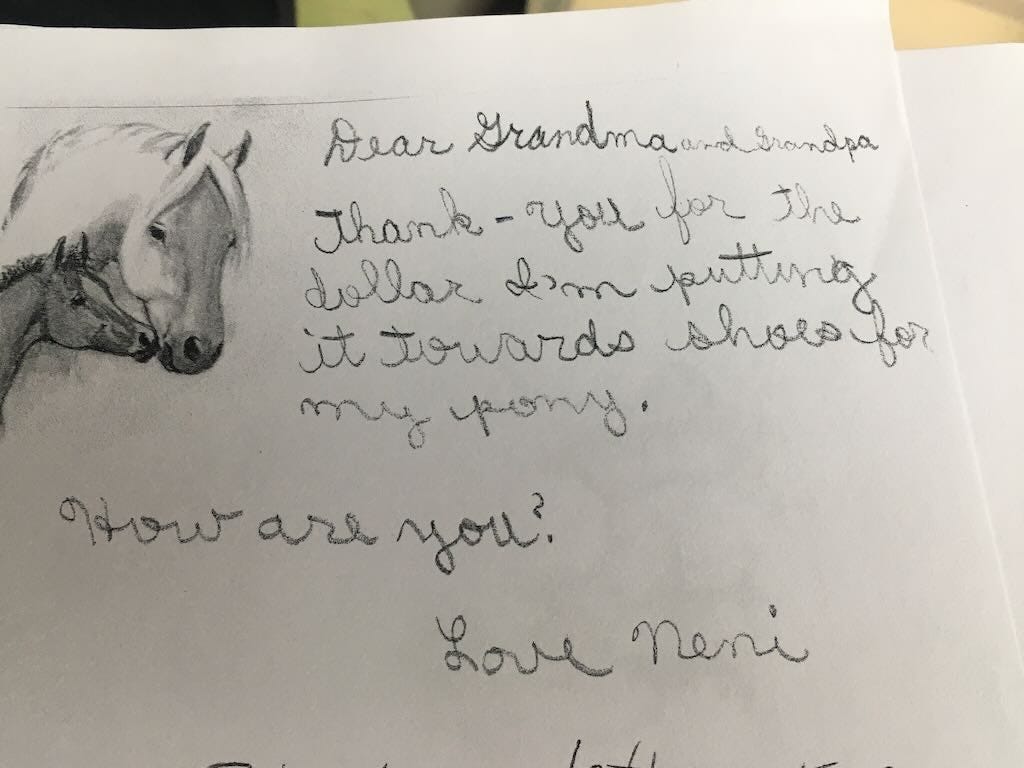 Dear Grandma and Grandpa
Thank-you for the
dollar I'm putting
it towards shoes for
my pony.
How are you?
Love Neni